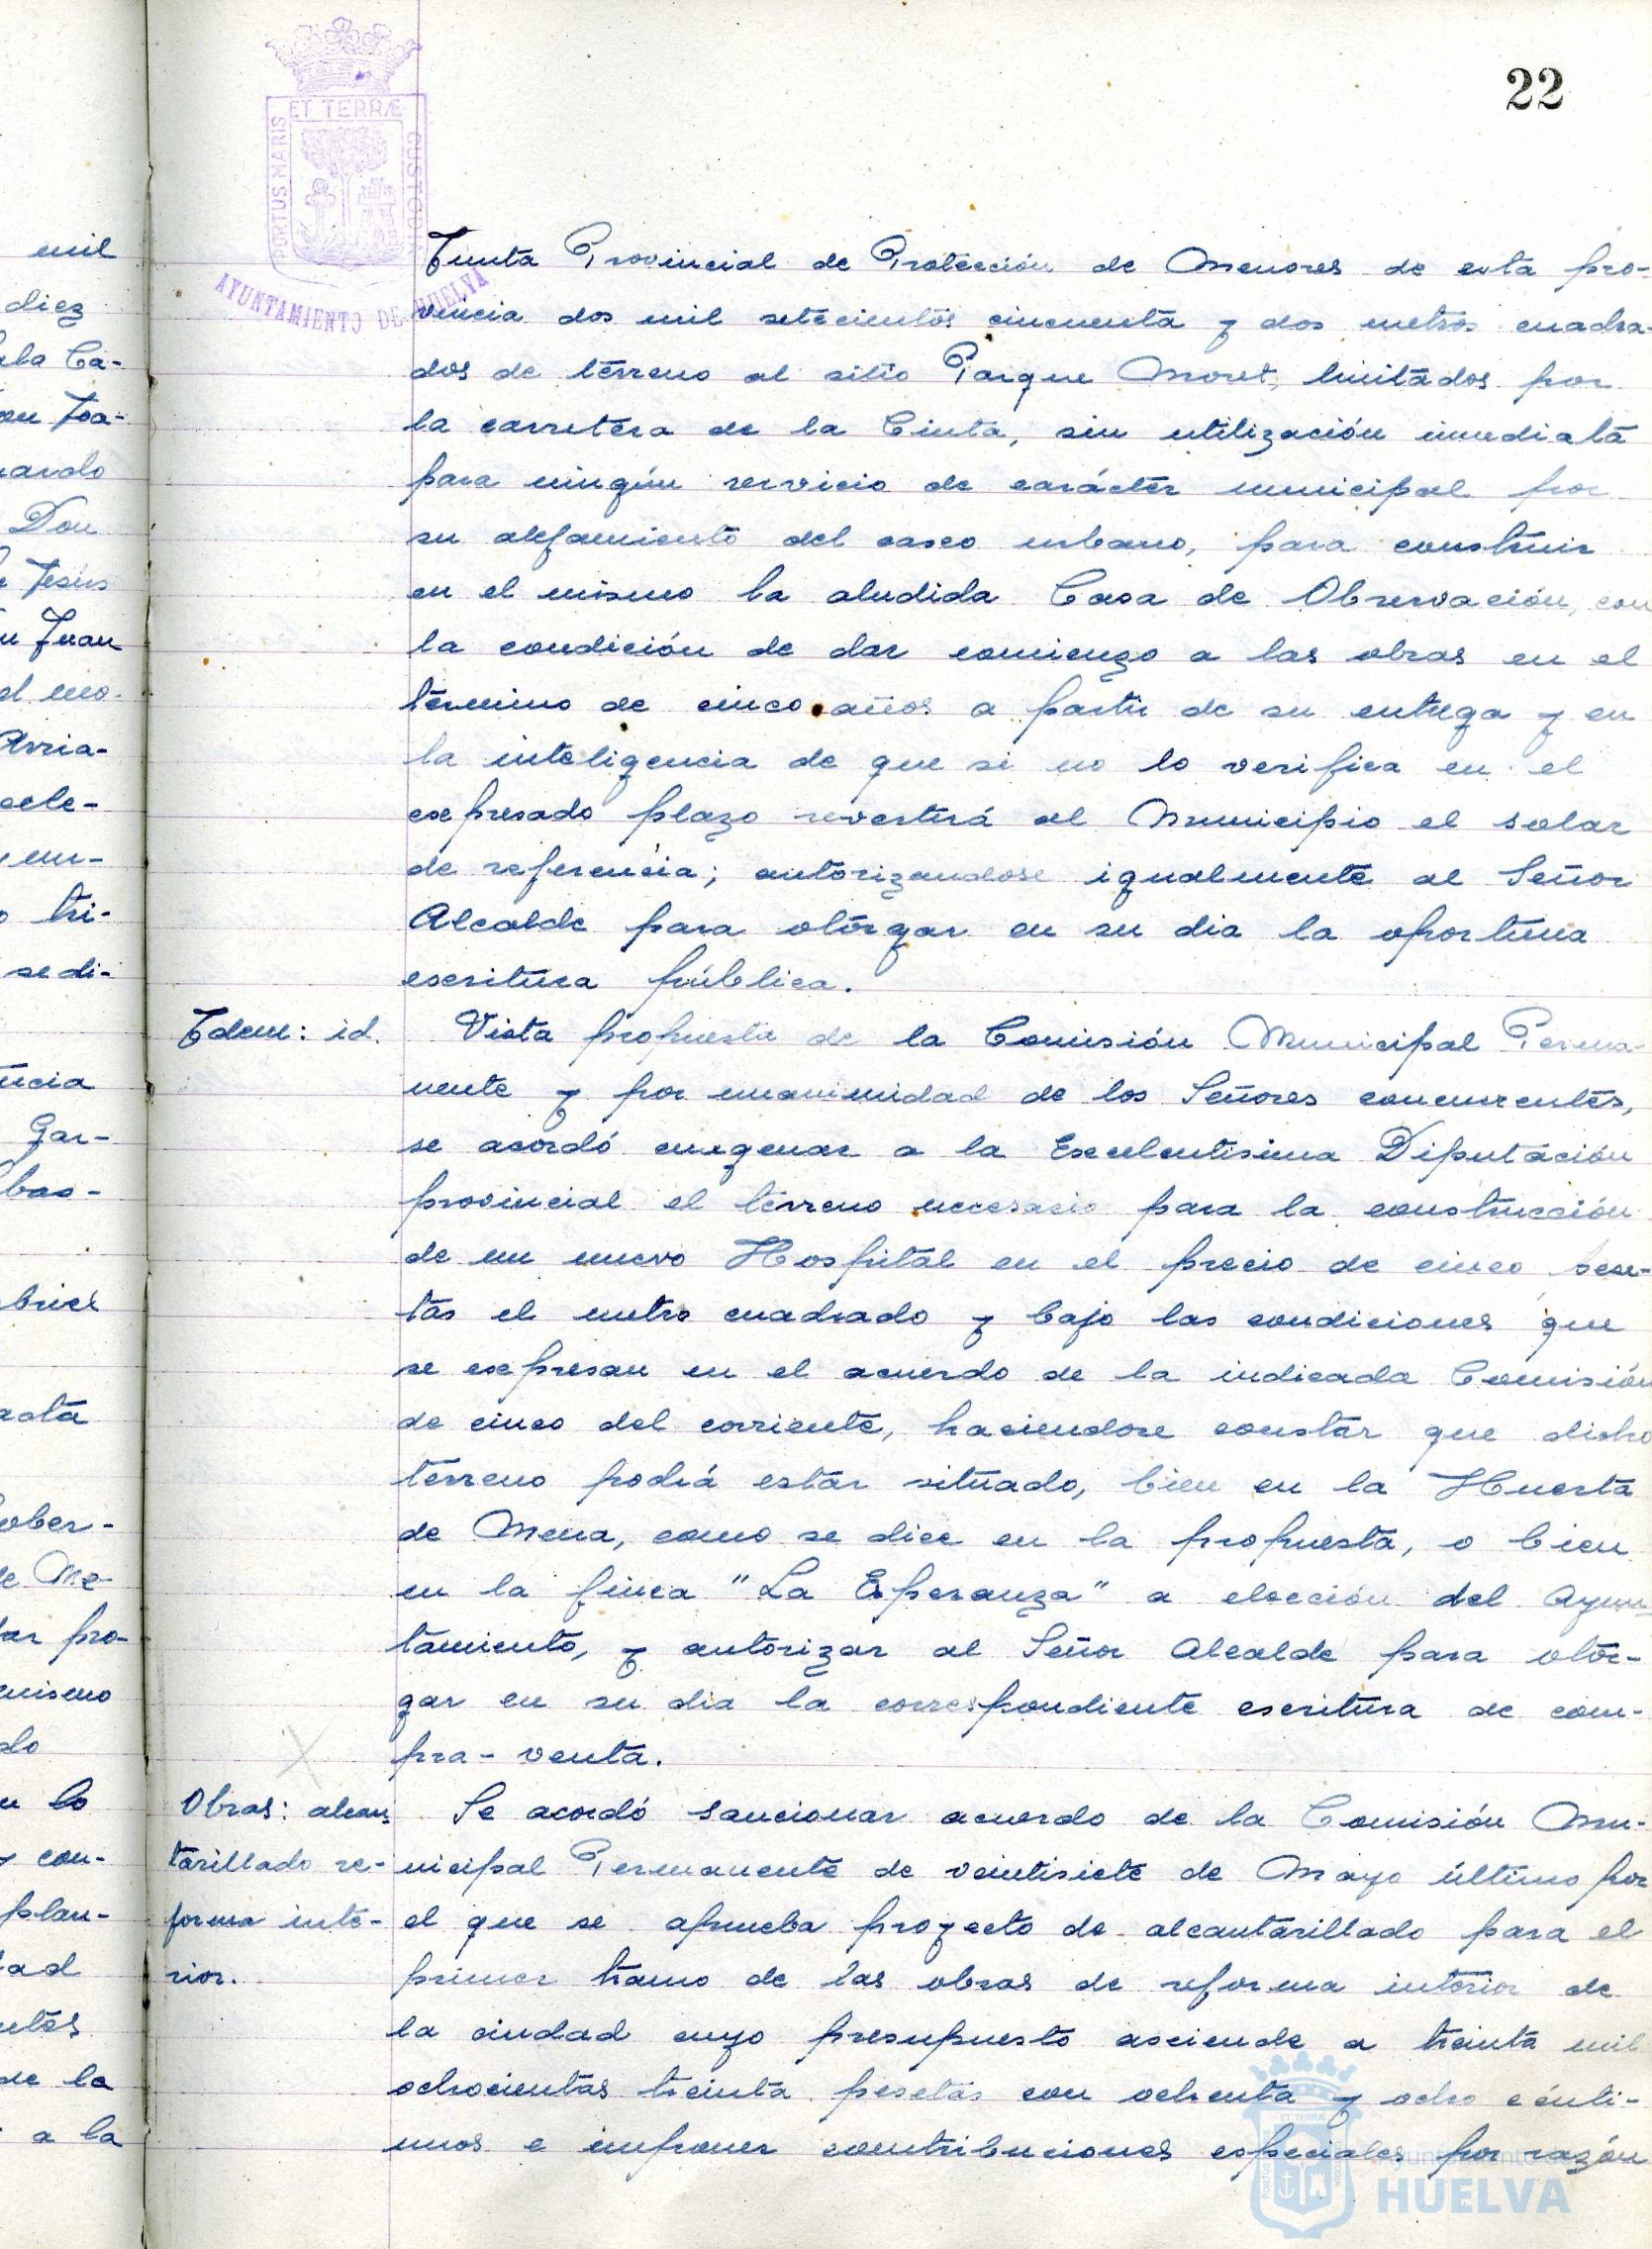 22
PORTUS MARIS ET TERRÆ CUSTODIA
AYUNTAMIENTO DE HUELVA
mil
diez
Ca-
Joa-
Don
Jesús
Juan
el mo-
Arria-
cele-
em-
tri-
se di-
ncia
Gar-
bas-
briel
acta
ober-
de Me-
pro-
mismo
do
lo
y con-
plan-
de la
a la
Junta Provincial de Protección de Menores de esta pro-
vincia dos mil setecientos cincuenta y dos metros cuadra-
dos de terreno al sitio Parque Moret, limitados por
la carretera de la Cinta, sin utilización inmediata
para ningún servicio de carácter municipal por
su alejamiento del casco urbano, para construir
en el mismo la aludida Casa de Observación, con
la condición de dar comienzo a las obras en el
término de cinco años a partir de su entrega y en
la inteligencia de que si no lo verifica en el
expresado plazo revertirá al Municipio el solar
de referencia; autorizandose igualmente al Señor
Alcalde para otorgar en su dia la oportuna
escritura pública.
Idem: id.
Vista propuesta de la Comisión Municipal Perma-
nente y por unanimidad de los Señores concurrentes,
se acordó enagenar a la Excelentisima Diputación
provincial el terreno necesario para la construcción
de un nuevo Hospital en el precio de cinco pese-
tas el metro cuadrado y bajo las condiciones que
se expresan en el acuerdo de la indicada Comisión
de cinco del corriente, haciendose constar que dicho
terreno podrá estar situado, bien en la Huerta
de Mena, como se dice en la propuesta, o bien
en la finca "La Esperanza" a elección del Ayun-
tamiento, y autorizar al Señor Alcalde para otor-
gar en su dia la correspondiente escritura de com-
pra-venta.
Obras: alcan-
tarillado re-
forma inte-
rior.
Se acordó sancionar acuerdo de la Comisión Mu-
nicipal Permanente de veintisiete de Mayo último por
el que se aprueba proyecto de alcantarillado para el
primer tramo de las obras de reforma interior de
la ciudad cuyo presupuesto asciende a treinta mil
ochocientas treinta pesetas con ochenta y ocho cénti-
mos e imponer contribuciones especiales por razón
Ayuntamiento de
HUELVA